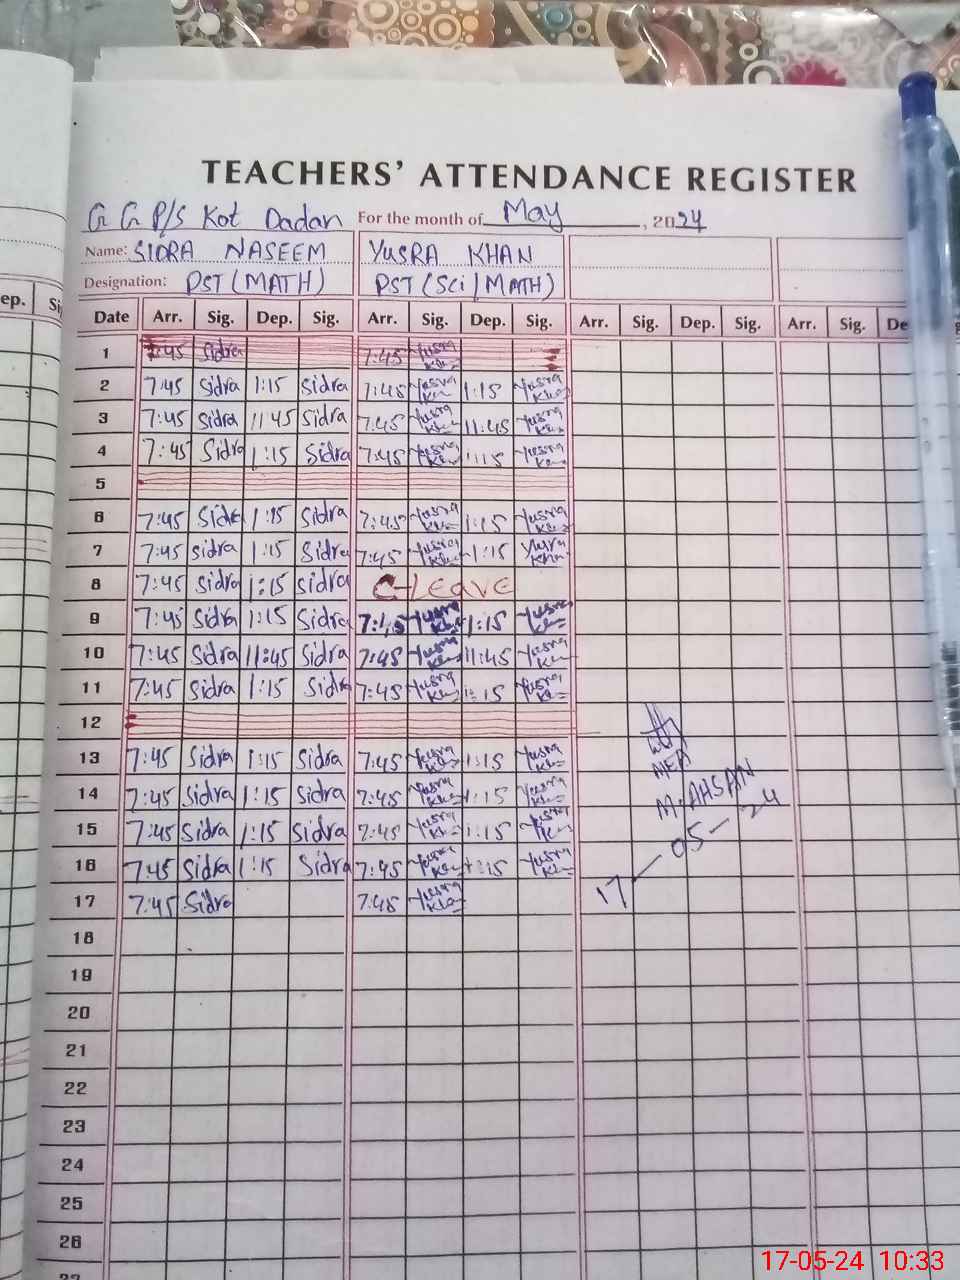 TEACHERS' ATTENDANCE REGISTER
G G P/S Kot Dadan For the month of May, 2024
Name: SIDRA NASEEM YUSRA KHAN
Designation: PST (MATH) PST (Sci/MATH)
ep. Si Date Arr. Sig. Dep. Sig. Arr. Sig. Dep. Sig. Arr. Sig. Dep. Sig. Arr. Sig. De
1 7:45 Sidra 7:45 Yusra Khan
2 7:45 Sidra 1:15 Sidra 7:45 Yusra Khan 1:15 Yusra Khan
3 7:45 Sidra 11 45 Sidra 7:45 Yusra Khan 11:45 Yusra Khan
4 7:45 Sidra 1:15 Sidra 7:45 Yusra Khan 1:15 Yusra Khan
5
6 7:45 Sidra 1:15 Sidra 7:45 Yusra Khan 1:15 Yusra Khan
7 7:45 Sidra 1:15 Sidra 7:45 Yusra Khan 1:15 Yusra Khan
8 7:45 Sidra 1:15 Sidra C-Leave
9 7:45 Sidra 1:15 Sidra 7:45 Yusra Khan 1:15 Yusra Khan
10 7:45 Sidra 11:45 Sidra 7:45 Yusra Khan 11:45 Yusra Khan
11 7:45 Sidra 1:15 Sidra 7:45 Yusra Khan 1:15 Yusra Khan
12
13 7:45 Sidra 1:15 Sidra 7:45 Yusra Khan 1:15 Yusra Khan
MEA
14 7:45 Sidra 1:15 Sidra 7:45 Yusra Khan 1:15 Yusra Khan
M. AHSAN
15 7:45 Sidra 1:15 Sidra 7:45 Yusra Khan 1:15 Yusra Khan
16 7:45 Sidra 1:15 Sidra 7:45 Yusra Khan 1:15 Yusra Khan
17-05-24
17 7:45 Sidra 7:45 Yusra Khan
18
19
20
21
22
23
24
25
26
27
17-05-24 10:33